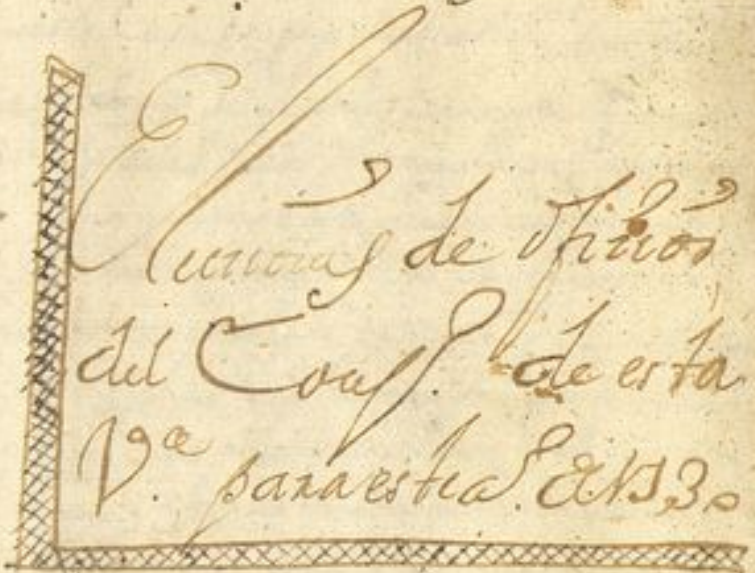 Elecciones de ofiçios
del Conss.º de esta
V.ª para este a.º de 1730